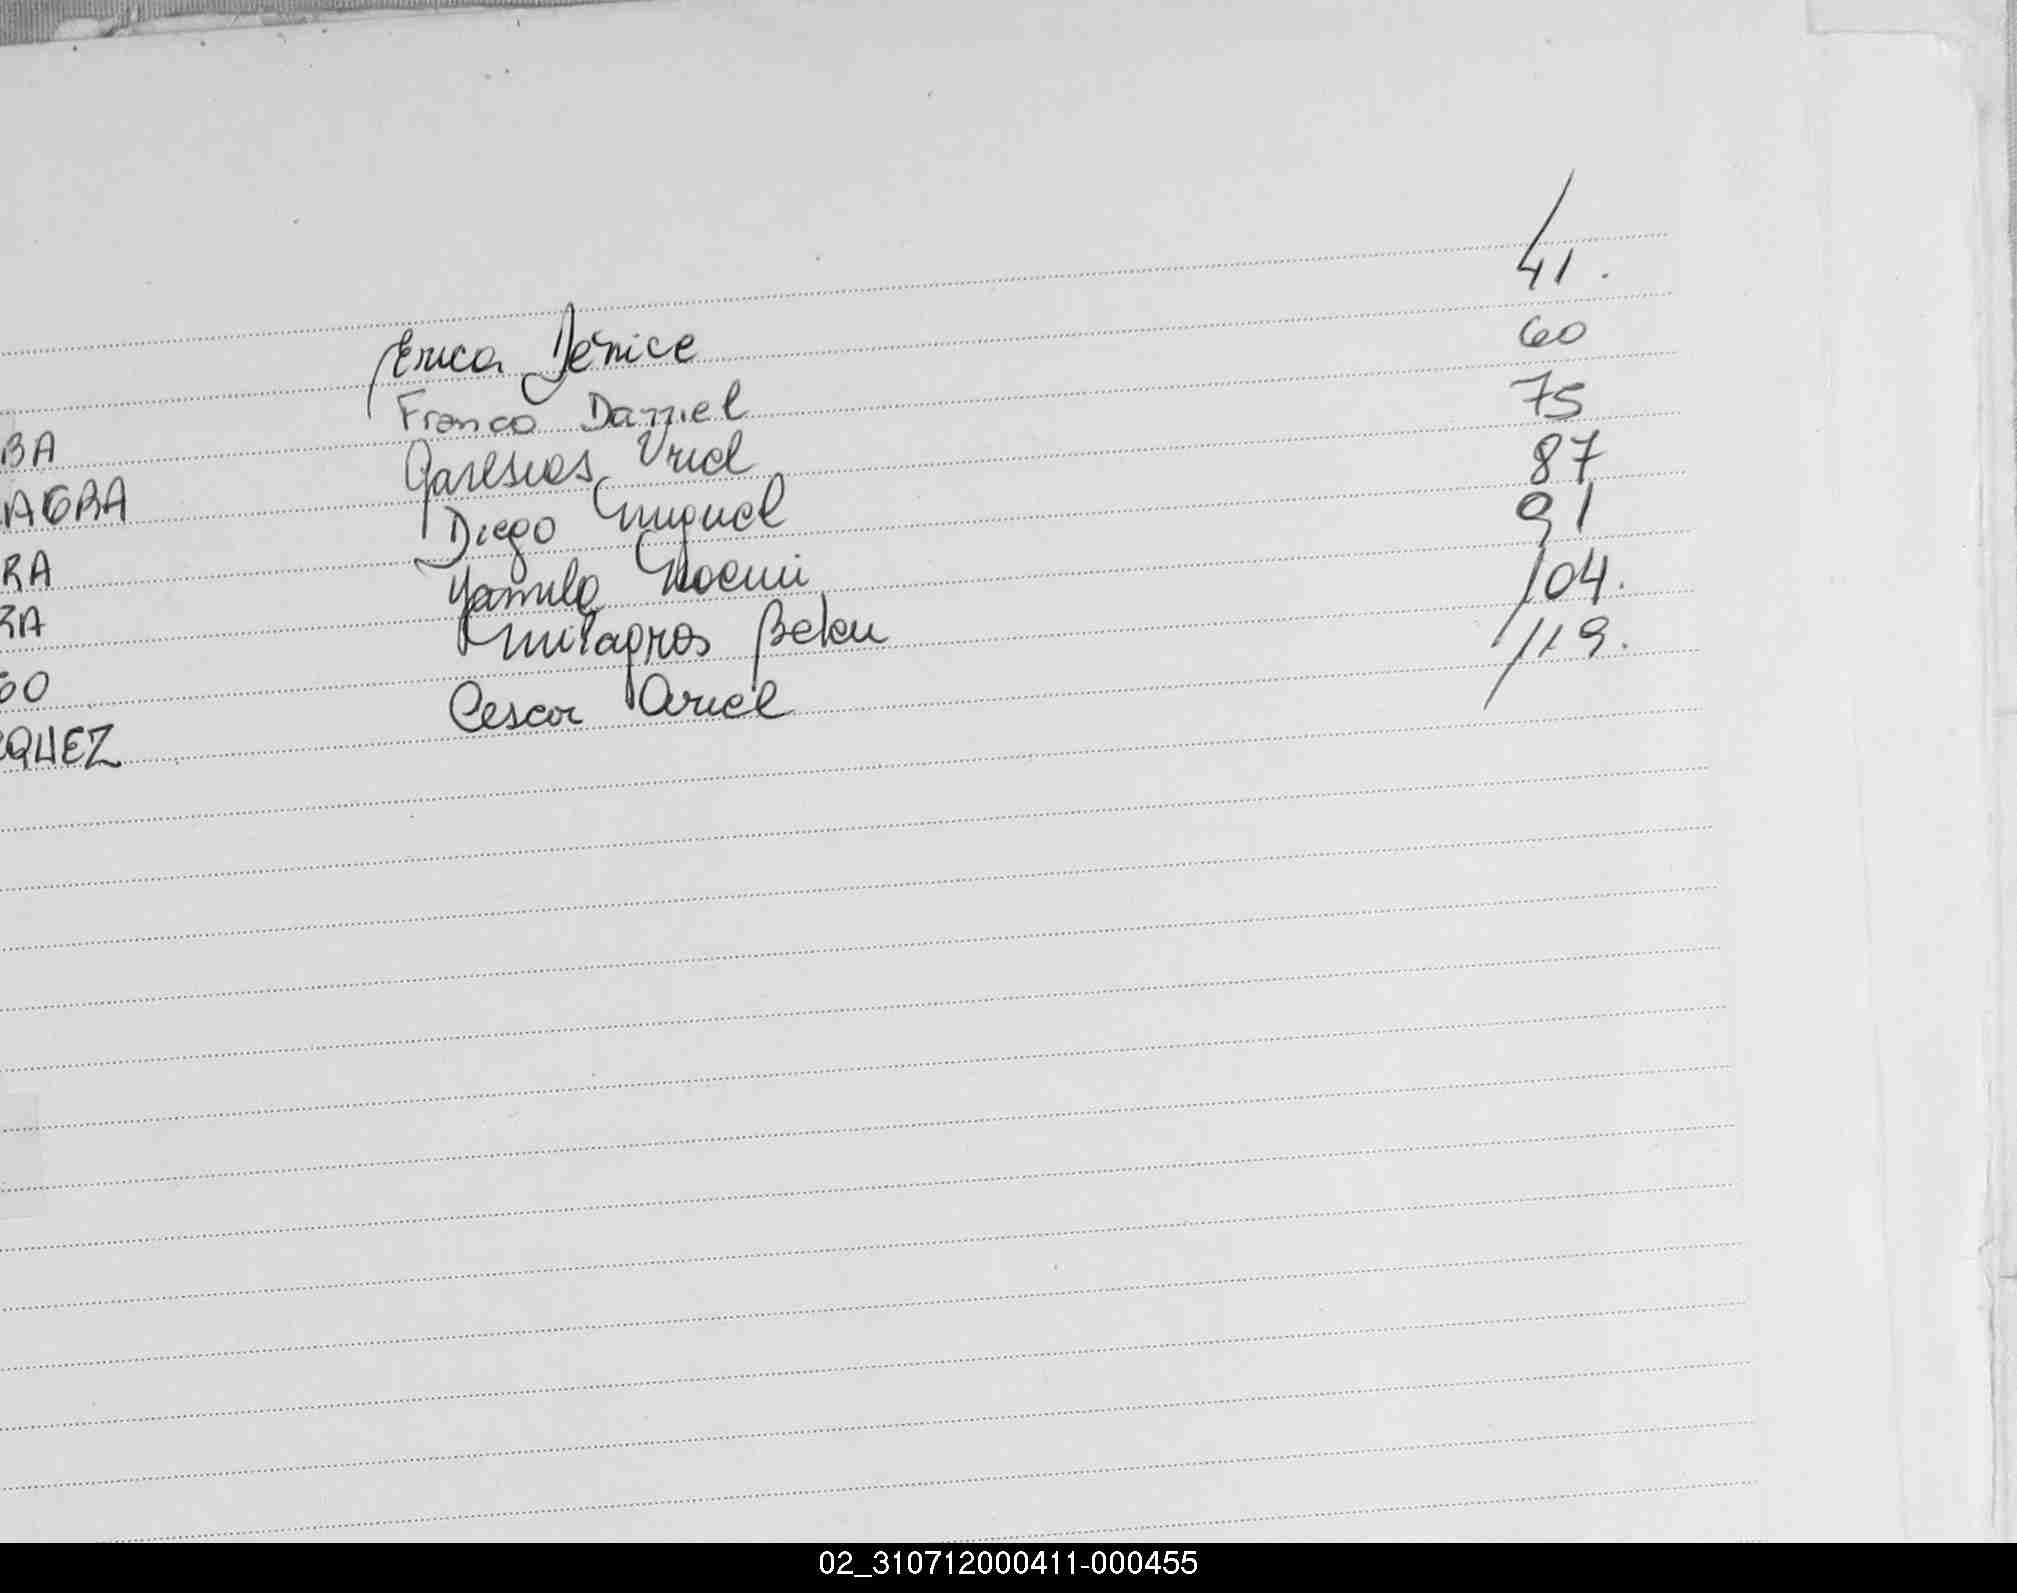 41.
Erica Denice 60
BA Franco Daniel 75
AGRA Uriel 87
RA Diego Miguel 91
RA Yamila Noemi 104.
GO Milagros Belen 119.
QUEZ Cesar Ariel
02_310712000411-000455